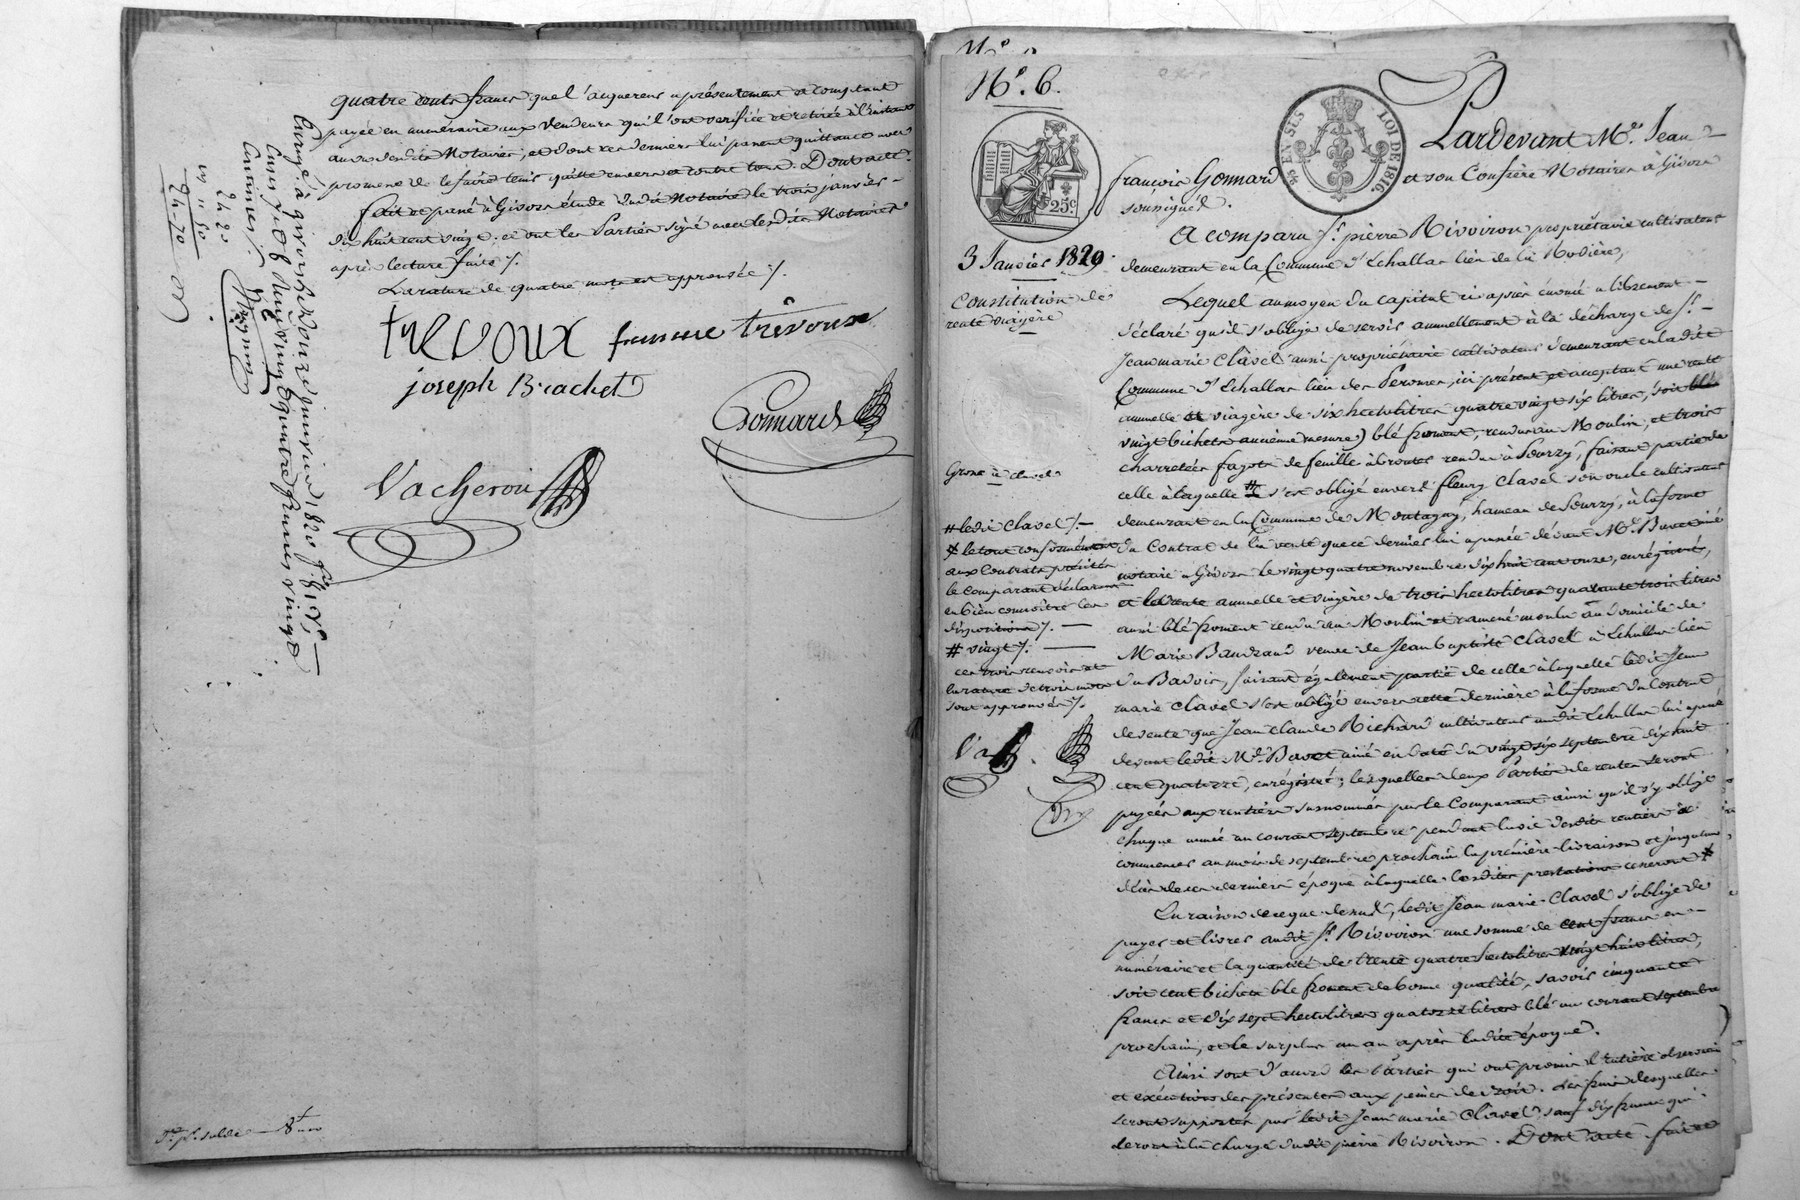 quatre cents francs que l'acquereur a présentement et comptant
payée en numéraire aux vendeurs qui l'ont verifiée et retirée à l'instant
au vu desdits Notaires, et dont ces derniers lui passent quittance avec
promesse de le faire tenir quitte envers et contre tous. Dont acte.
fait et passé à Givors étude dudit Notaire le trois janvier
dix huit cent vingt. et ont les Parties signé avec lesdits Notaires
après lecture faite /.
La rature de quatre mots est approuvée /.
trevoux femme trévoux
joseph Brachet
Gonnard
Vacheron
Enregé à givors le douze janvier 1820 f°
vingt quatre francs vingt
centimes /.
24 20
24-70
N°. 6.
25c
LOI DE 1816
3 Janvier 1820
Constitution de
rente viagère
Grosse à clavel
# ledit Clavel /.
* le tout conformément
aux Contrats précités
le comparant déclarant
en bien connoître les
dispositions /.
# vingt /.
ces trois renvois et
la rature de trois mots
sont approuvés /.
Pardevant Me. Jean
françois Gonnard et son Confrère Notaires à Givors
soussignés.
A comparu Sr. pierre Rivoiron propriétaire cultivateur
demeurant en la Commune d'Echallas lieu de la Rodière,
Lequel au moyen du capital ci après énoncé a librement
déclaré qu'il s'oblige de servir annuellement à la décharge de Sr.
Jean marie Clavel aussi propriétaire cultivateur demeurant en ladite
Commune d'Echallas lieu des, ici présent et acceptant une rente
annuelle et viagère de six hectolitres quatre vingt six litres, (soit
vingt bichets ancienne mesure) blé froment, rendu au Moulin, et trois
charretées fagots de feuille rendues à Sourzy, faisant partie de
celle à laquelle # s'est obligé envers fleury Clavel son oncle cultivateur
demeurant en la Commune de Montagny, hameau de Sourzy, à la forme
du Contrat de la vente que ce dernier lui a passée devant Me. Bavet ainé
notaire à Givors le vingt quatre novembre dix huit cent onze, enrégistré,
et la rente annuelle et viagère de trois hectolitres quarante trois litres
aussi blé froment rendu au Moulin et ramené moulu au Domicile de
Marie Baudrand veuve de Jean baptiste Clavel à Echallas lieu
du Badois, faisant également partie de celle à laquelle ledit Jean
marie Clavel s'est obligé envers cette dernière à la forme du Contrat
de vente que Jean Claude Richard cultivateur audit Echallas lui a passé
devant ledit Me. Bavet ainé en date du vingt six septembre dix huit
cent quatorze, enrégistré; lesquelles deux Parties de rentes seront
payées aux rentiers susnommés par le Comparant ainsi qu'il s'y oblige
chaque année au courant septembre pendant la vie desdits rentiers à
commencer au mois de septembre prochain la première livraison et jusqu'au
décès de ces derniers époque à laquelle lesdites prestations cesseront *
En raison de ce que dessus, ledit Jean marie Clavel s'oblige de
payer et livrer audit Sr. Rivoiron une somme de cent francs en
numéraire et la quantité de trente quatre hectolitres vingt huit litres,
soit cent bichets blé froment de bonne qualité, savoir cinquante
francs et dix sept hectolitres quatorze litres blé au courant septembre
prochain, et le surplus un an après ladite époque.
Ainsi sont d'accord les Parties qui ont promis l'entière observation
et exécution des présentes aux peines de droit. Les frais desquelles
seront supportés par ledit Jean marie Clavel, sauf dix francs qui
seront à la charge dudit pierre Rivoiron. Dont acte fait et